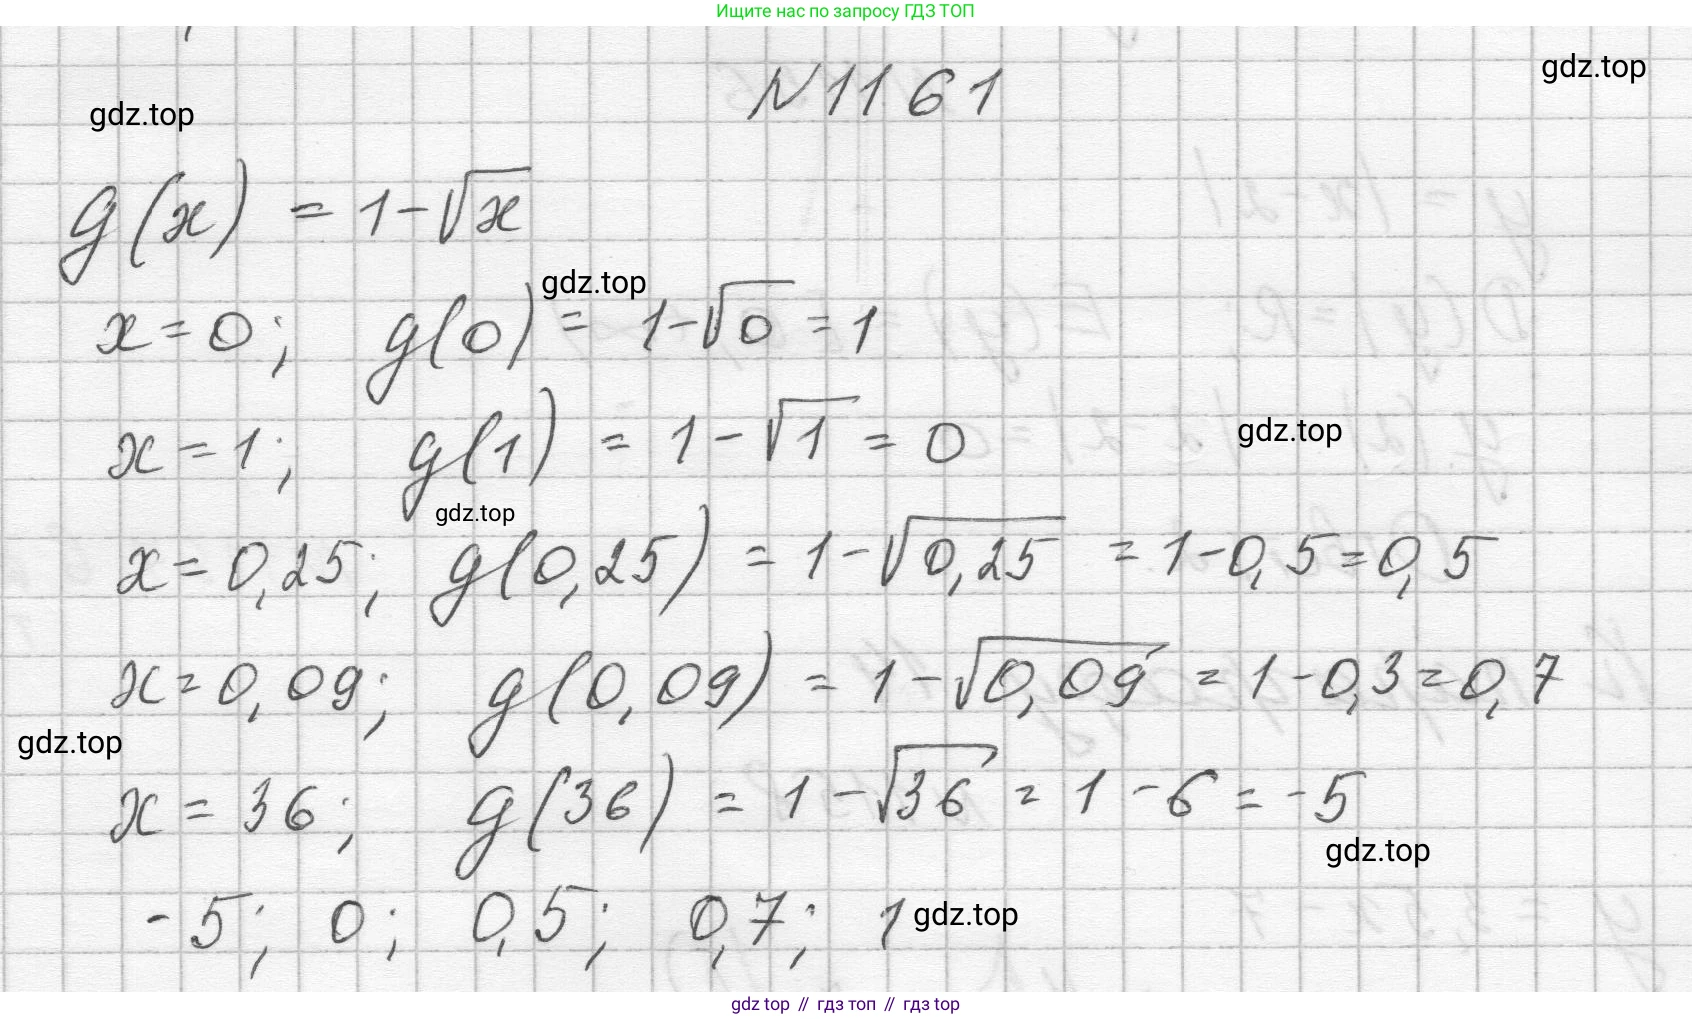 Ищите нас по запросу ГДЗ ТОП
gdz.top
№1161
gdz.top
g(x) = 1-√x
gdz.top
x=0; g(0) = 1-√0 = 1
x=1; g(1) = 1-√1 = 0
gdz.top
gdz.top
x=0,25; g(0,25) = 1-√0,25 = 1-0,5=0,5
x=0,09; g(0,09) = 1-√0,09 = 1-0,3=0,7
gdz.top
x=36; g(36) = 1-√36 = 1-6=-5
gdz.top
-5; 0; 0,5; 0,7; 1
gdz.top
gdz top // гдз топ // гдз top